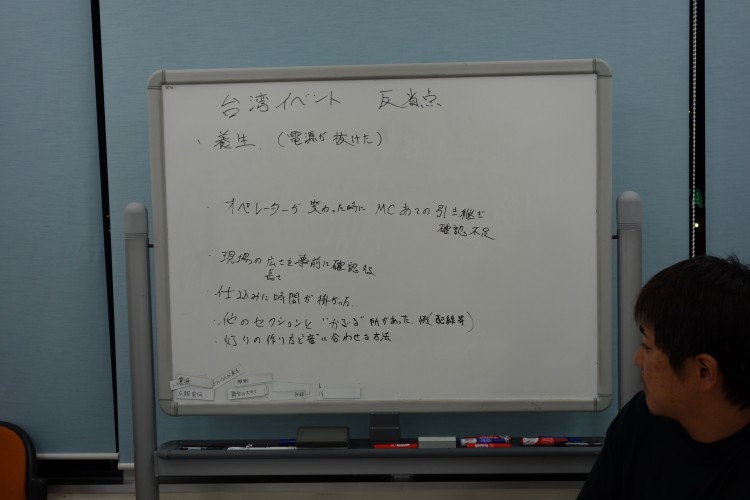 台湾イベント 反省点
・養生 (電源が抜けた)
・オペレーターが変わった時に MCあての引き継ぎ
確認不足
・現場の広さを事前に確認
長さ
・仕込みに時間が掛かった
・他のセクションと"かぶる"所があった 例(配線等)
・灯りの作り方と音に合わせる方法